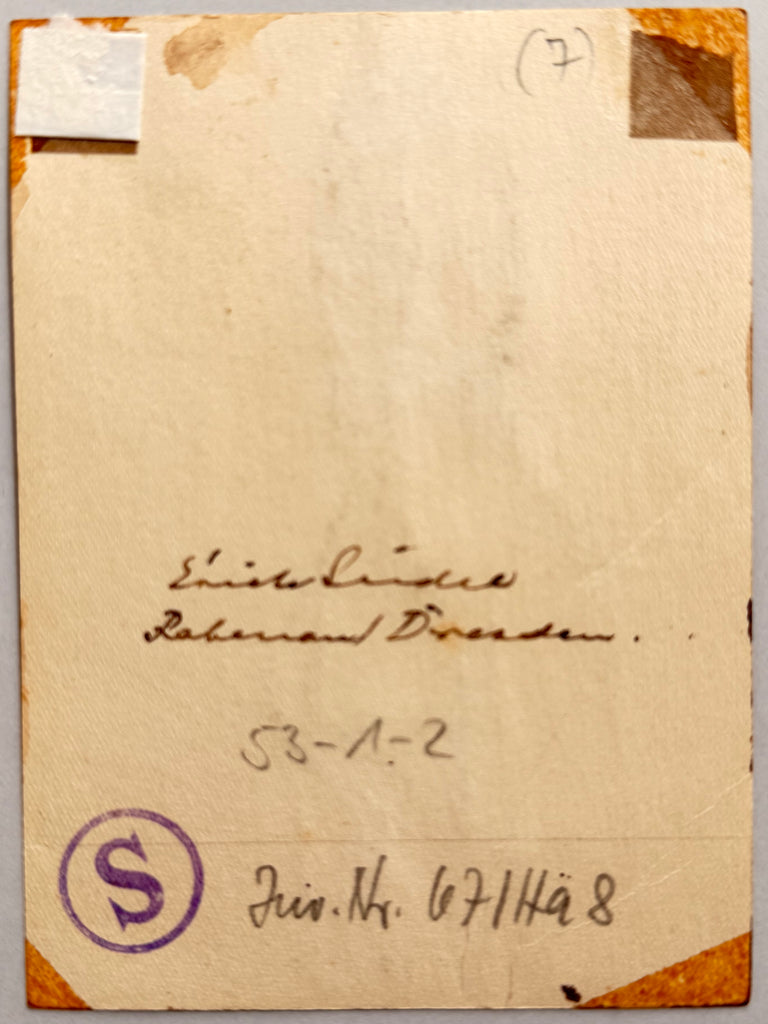 (7)
Erich Seidel
Rabenau / Dresden.
53-1-2
S
Inv. Nr. 67/Hä 8